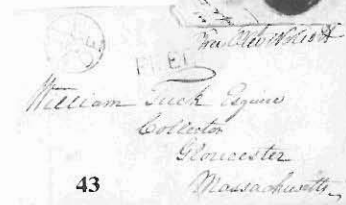 FREE
William Tuck Esquire
Collector
Gloucester
Massachusetts
43